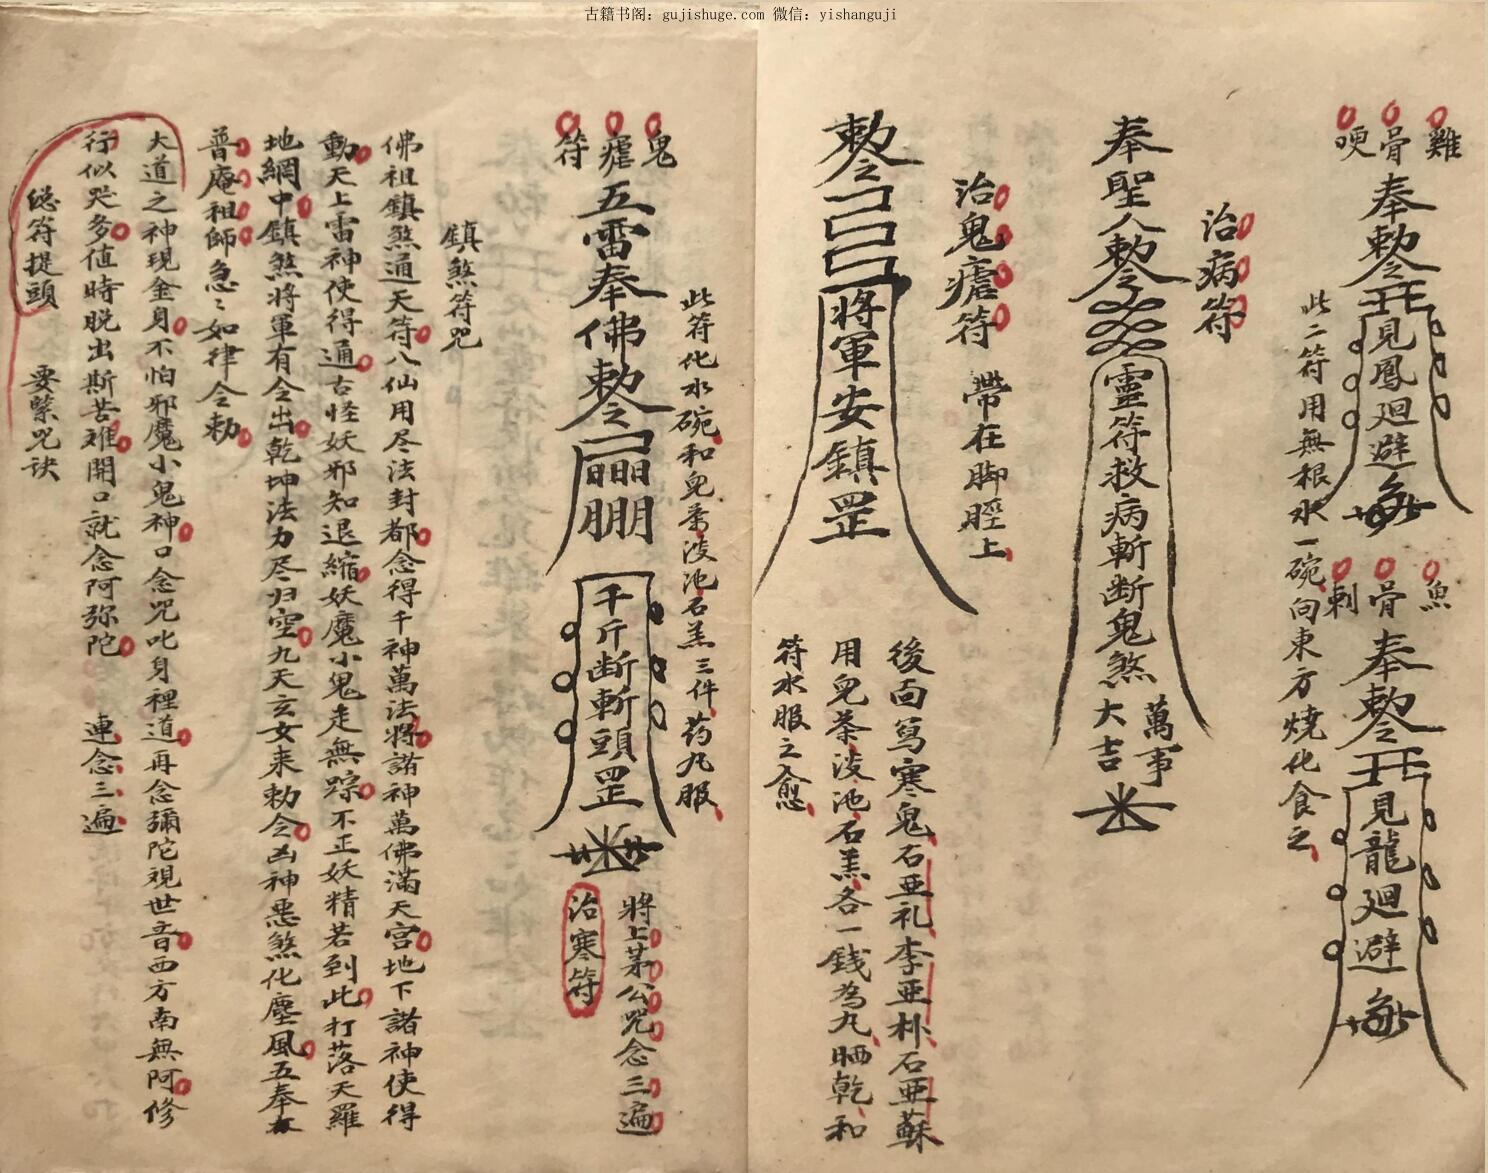 古籍书阁：gujishuge.com 微信：yishanguji
雞骨哽
奉勅令
見鳳廻避
魚骨刺
奉勅令
見龍廻避
此二符用無根水一碗向東方燒化食之
治病符
奉聖人勅令
靈符救病斬断鬼煞
萬事大吉
治鬼瘧符 帶在脚脛上
勅令
將軍安鎮罡
後面写寒鬼石亜礼李亜朴石亜蘇
用兒茶淩池石羔各一錢為丸晒乾和
符水服之愈
鬼瘧符
此符化水碗和兒茶淩池石羔三件药丸服
五雷奉佛勅令
千斤断斬頭罡
將上茅公咒念三遍
治寒符
鎮煞符咒
佛祖鎮煞通天符八仙用尽法封都念得千神萬法將諸神萬佛滿天宮地下諸神使得
動天上雷神使得通古怪妖邪知退縮妖魔小鬼走無踪不正妖精若到此打落天羅
地網中鎮煞將軍有令出乾坤法力尽归空九天玄女来勅令凶神惡煞化塵風五奉
普庵祖師急〻如律令勅
大道之神現金身不怕邪魔小鬼神口念咒叱身裡道再念彌陀观世音西方南無阿修
行似哭多值時脱出斯苦难開口就念阿弥陀 連念三遍
総符提頭 要緊咒诀